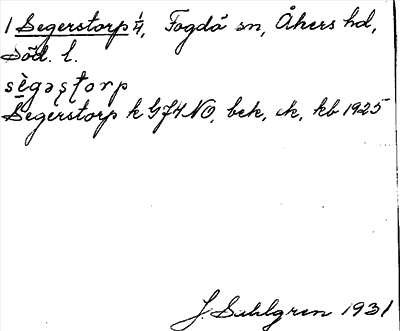 1 Segerstorp 1/4, Fogdö sn, Åkers hd,
Söd. l.
sègəʂʈorp
Segerstorp k G74NO, bek, ck, kb 1925
J. Sahlgren 1931